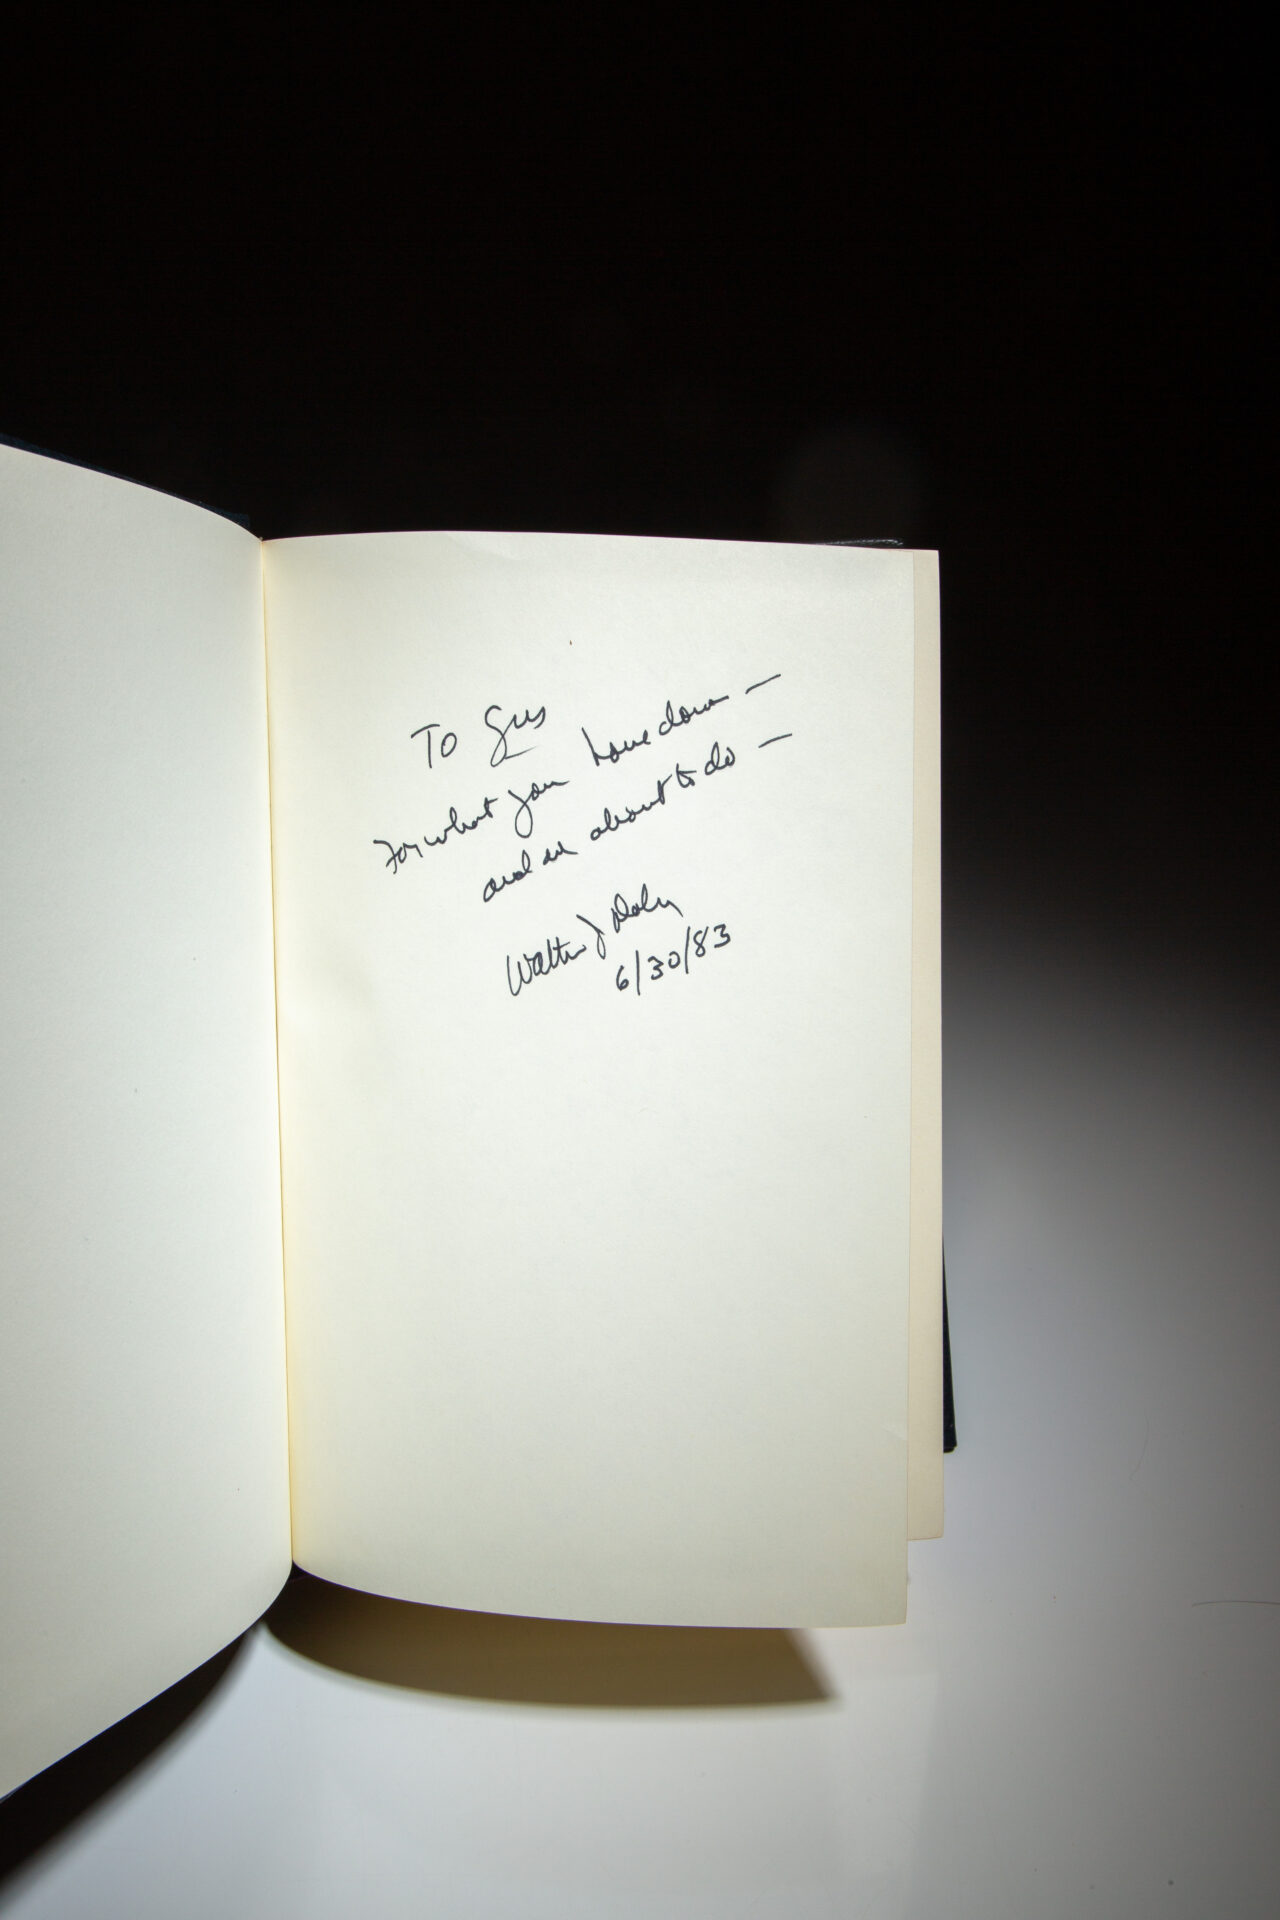 To Gus
For what you have done —
and are about to do —
Walter J
6/30/83